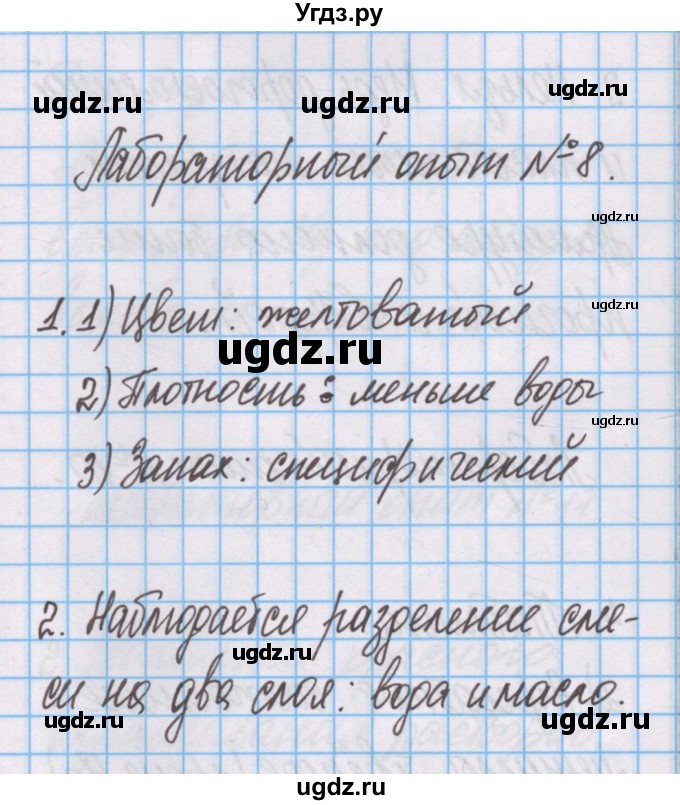 Угдз.ру
ugdz.ru ugdz.ru ugdz.ru
Лабораторный опыт №8.
ugdz.ru
1. 1) Цвет: желтоватый
ugdz.ru ugdz.ru
2) Плотность: меньше воды
ugdz.ru
3) Запах: специфический
ugdz.ru
2. Наблюдается разделение сме-
ugdz.ru
си на два слоя: вода и масло.
ugdz.ru ugdz.ru
ugdz.ru